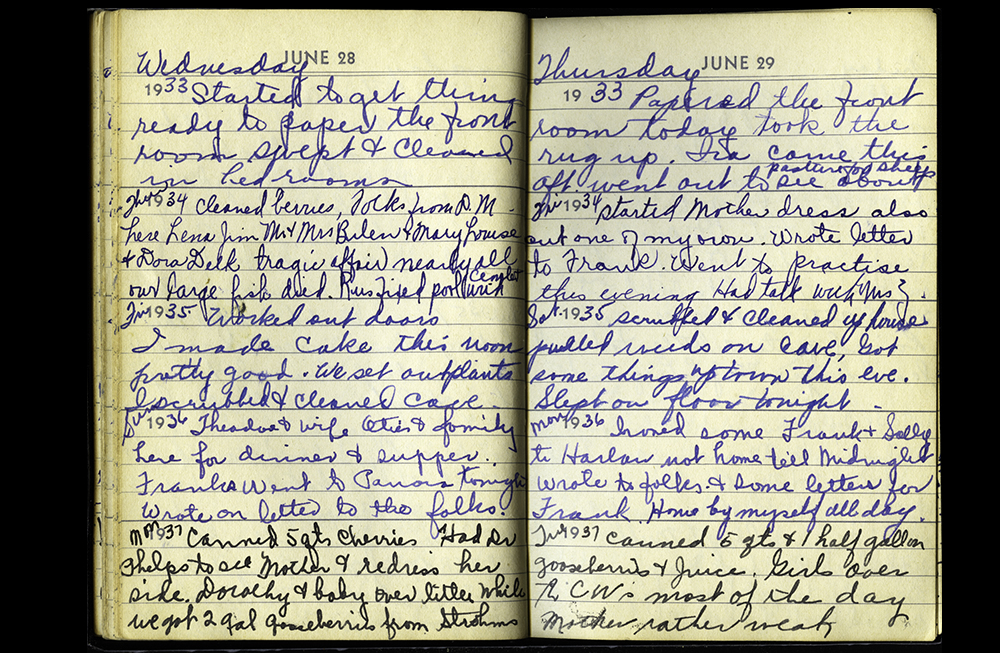 JUNE 28
Wednesday
1933 Started to get things
ready to paper the front
room swept & cleaned
in bedrooms
1934 cleaned berries, Folks from D. M.
here Lena Jim Mr & Mrs & Mary Louise
& Dora Dell tragic affair nearly all
our large fish died. Rus fixed pool with cement
Fri 1935 Worked out doors
I made cake this noon
pretty good. We set out plants
I scrubbed & cleaned cave
Sun 1936 & wife Otis & family
here for dinner & supper.
Franks went to tonight
Wrote on letter to the folks.
Mon 1937 Canned 5 qts Cherries Had Dr
Phelps to see Mother & redress her
side. Dorothy & baby over little while
we got 2 gal gooseberries from Strohms
JUNE 29
Thursday
1933 Papered the front
room today took the
rug up. Ira came this
aft went out to see about pasture for sheep
Fri 1934 started Mother dress also
cut one of my own. Wrote letter
to Frank. Went to practise
this evening Had talk with Mrs
Sat. 1935 scrubbed & cleaned up house
pulled weeds on cave, Got
some things up town this eve.
Slept on floor tonight
Mon 1936 Ironed some Frank & Sally
to Harlan not home till Midnight
wrote to folks. & some letters for
Frank. Home by myself all day.
1937 canned 5 qts & 1 half gallon
gooseberries & Juice. Girls over
to CWs most of the day
Mother rather weak